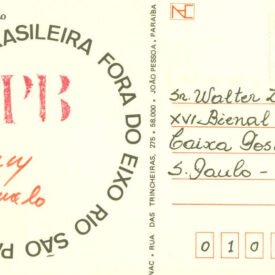 BRASILEIRA FORA DO EIXO RIO SÃO PA
PB
NAC - RUA DAS TRINCHEIRAS, 275 - 58.000 - JOÃO PESSOA, PARAÍBA
NC
Sr. Walter Z
XVI Bienal
Caixa Pos
S. Paulo -
0 1 0